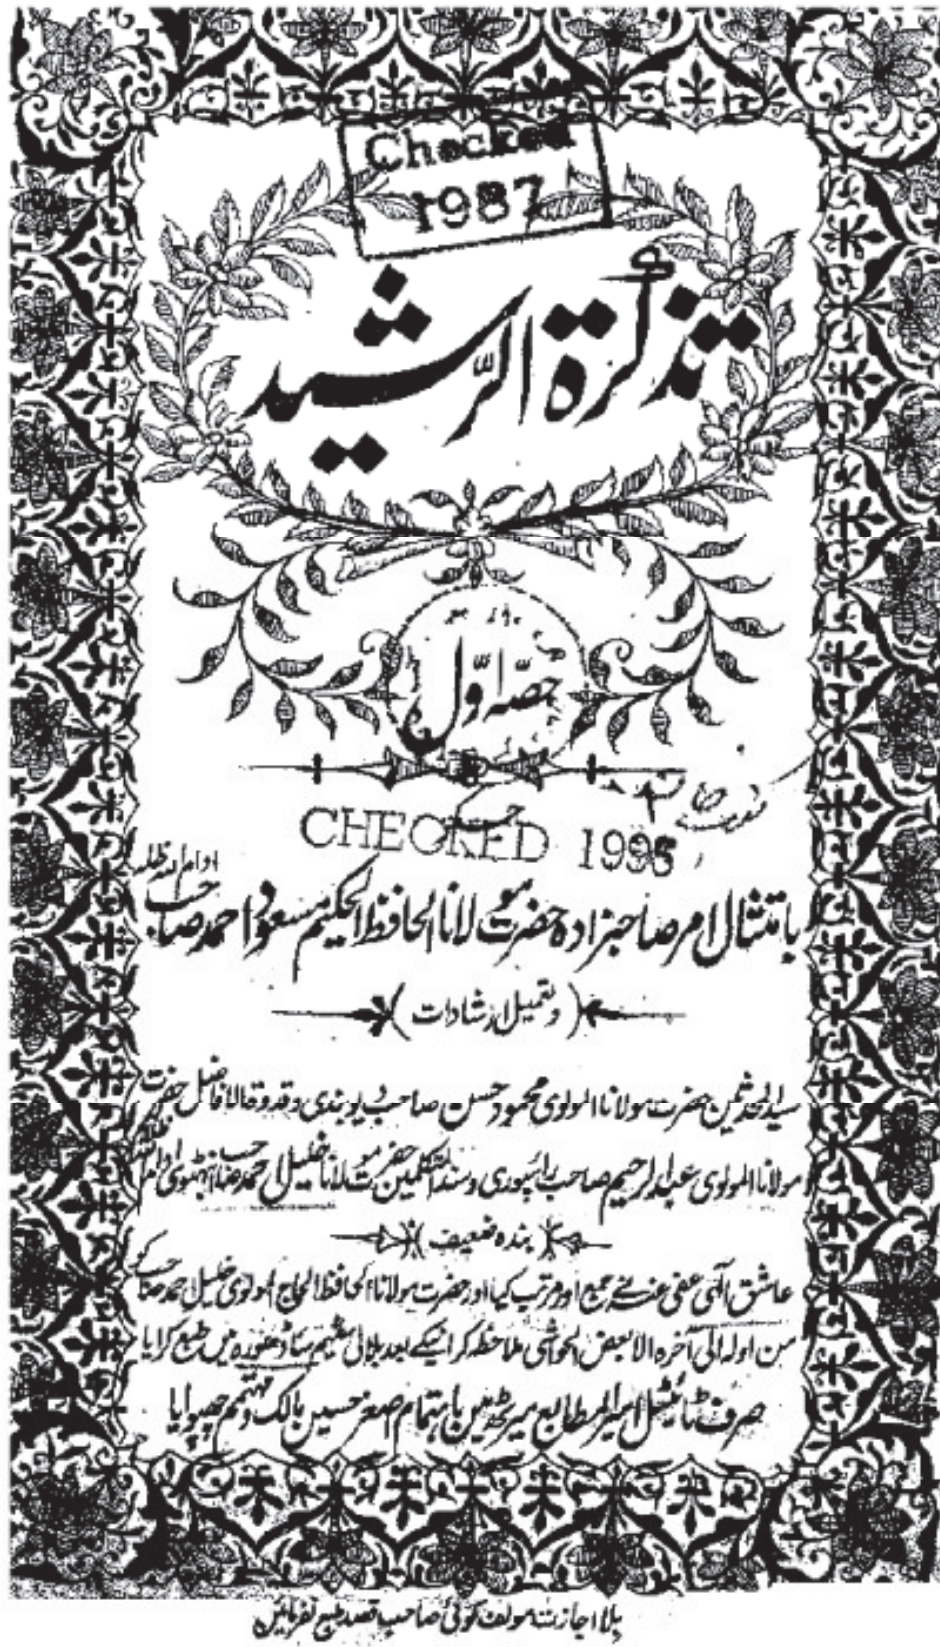 Checked
1987
تذکرۃ الرّشید
حصّہ اوّل
CHECKED 1995
ادام اللہ ظلہ
بامتثال امر صاحبزادہ حضرت مولانا الحافظ الحکیم مسعود احمد صاحب
(و تعمیل ارشادات)
سید المحدثین حضرت مولانا المولوی محمود حسن صاحب دیوبندی وقدوۃ الافاضل حضرت
مولانا المولوی عبدالرحیم صاحب رائپوری وسند المتکلمین حضرت مولانا خلیل احمد صاحب انبہٹوی ادام اللہ
بندہ ضعیف
عاشق الٰہی عفی عنہ نے جمع اور مرتب کیا اور حضرت مولانا الحافظ الحاج المولوی خلیل احمد صاحب کو
من اولہ الی آخرہ الا بعض الحواشی ملاحظہ کرا لینے کے بعد بلالی اسٹیم ساڈھورہ میں طبع کرایا
صرف ٹائیٹل امیر المطابع میرٹھ مین باہتمام اصغر حسین مالک و مہتمم چھپوایا
بلا اجازت مولف کوئی صاحب قصد طبع نفرمائیں